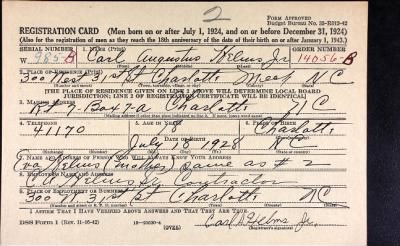 2
FORM APPROVED
Budget Bureau No. 33-R012-42
REGISTRATION CARD (Men born on or after July 1, 1924, and on or before December 31, 1924)
(Also for the registration of men as they reach the 18th anniversary of the date of their birth on or after January 1, 1943.)
SERIAL NUMBER 1. NAME (Print) ORDER NUMBER
W 985-B Carl Augustus Helms Jr 14056-B
(First) (Middle) (Last)
2. PLACE OF RESIDENCE (Print)
300 West 31st St Charlotte Meck N C
[THE PLACE OF RESIDENCE GIVEN ON LINE 2 ABOVE WILL DETERMINE LOCAL BOARD
JURISDICTION; LINE 2 OF REGISTRATION CERTIFICATE WILL BE IDENTICAL]
3. MAILING ADDRESS
Box 7-A Charlotte N C
[Mailing address if other than place indicated on line 2. If same, insert word same]
4. TELEPHONE 5. AGE IN YEARS 6. PLACE OF BIRTH
41170 18 Charlotte
DATE OF BIRTH
July 18 1928 N C
7. NAME AND ADDRESS OF PERSON WHO WILL ALWAYS KNOW YOUR ADDRESS
Helms (mother) same as # 2
8. EMPLOYER'S NAME AND ADDRESS
Helms Sr Contractor
9. PLACE OF EMPLOYMENT OR BUSINESS
300 W 31st St Charlotte NC
I AFFIRM THAT I HAVE VERIFIED ABOVE ANSWERS AND THAT THEY ARE TRUE.
DSS Form 1 (Rev. 11-16-42) (OVER)
Carl A Helms Jr.